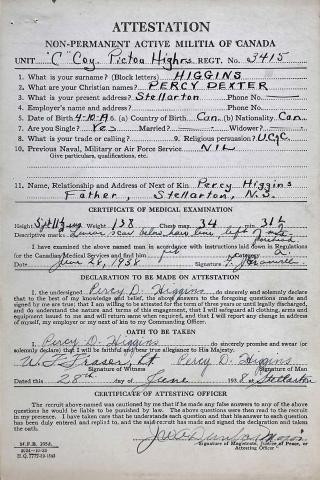 ATTESTATION
NON-PERMANENT ACTIVE MILITIA OF CANADA
UNIT "C" Coy. Pictou Highrs. REGT. No. 3415
1. What is your surname? (Block letters) HIGGINS
2. What are your Christian names? PERCY DEXTER
3. What is your present address? Stellarton Phone No.
4. Employer's name and address? Phone No.
5. Date of Birth 4-10- 6. (a) Country of Birth Can. (b) Nationality Can.
7. Are you Single? Yes Married? Widower?
8. What is your trade or calling? 9. Religious persuasion? U.C.of C
10. Previous Naval, Military or Air Force Service NIL
Give particulars, qualifications, etc.
11. Name, Relationship and Address of Next of Kin Percy Higgins
Father, Stellarton, N.S.
CERTIFICATE OF MEDICAL EXAMINATION
Height Weight 138 Chest 34
Descriptive marks
I have examined the above named man in accordance with instructions laid down in Regulations
for the Canadian Medical Services and find him fit category A.
Date June 28, 1938 Signature
DECLARATION TO BE MADE ON ATTESTATION
I, the undersigned Percy D. Higgins do sincerely and solemnly declare
that to the best of my knowledge and belief, the above answers to the foregoing questions made and
signed by me are true; that I am willing to be attested for the term of three years or until legally discharged,
and do understand the nature and terms of this engagement, that I will safeguard all clothing, arms and
equipment issued to me and will return same when required, and that I will report any change in address
of myself, my employer or my next of kin to my Commanding Officer.
OATH TO BE TAKEN
I, Percy D. Higgins do sincerely promise and swear (or
solemnly declare) that I will be faithful and bear true allegiance to His Majesty.
Fraser, Lt Percy D. Higgins
Signature of Witness Signature of Man
Dated this 28th day of June 1938 at Stellarton
CERTIFICATE OF ATTESTING OFFICER
The recruit above-named was cautioned by me that if he made any false answers to any of the above
questions he would be liable to be punished by law. The above questions were then read to the recruit
in my presence. I have taken care that he understands each question and that his answer to each question
has been duly entered and replied to, and the said recruit has made and signed the declaration and taken
the oath.
Major
Signature of Magistrate, Justice of Peace, or
Attesting Officer